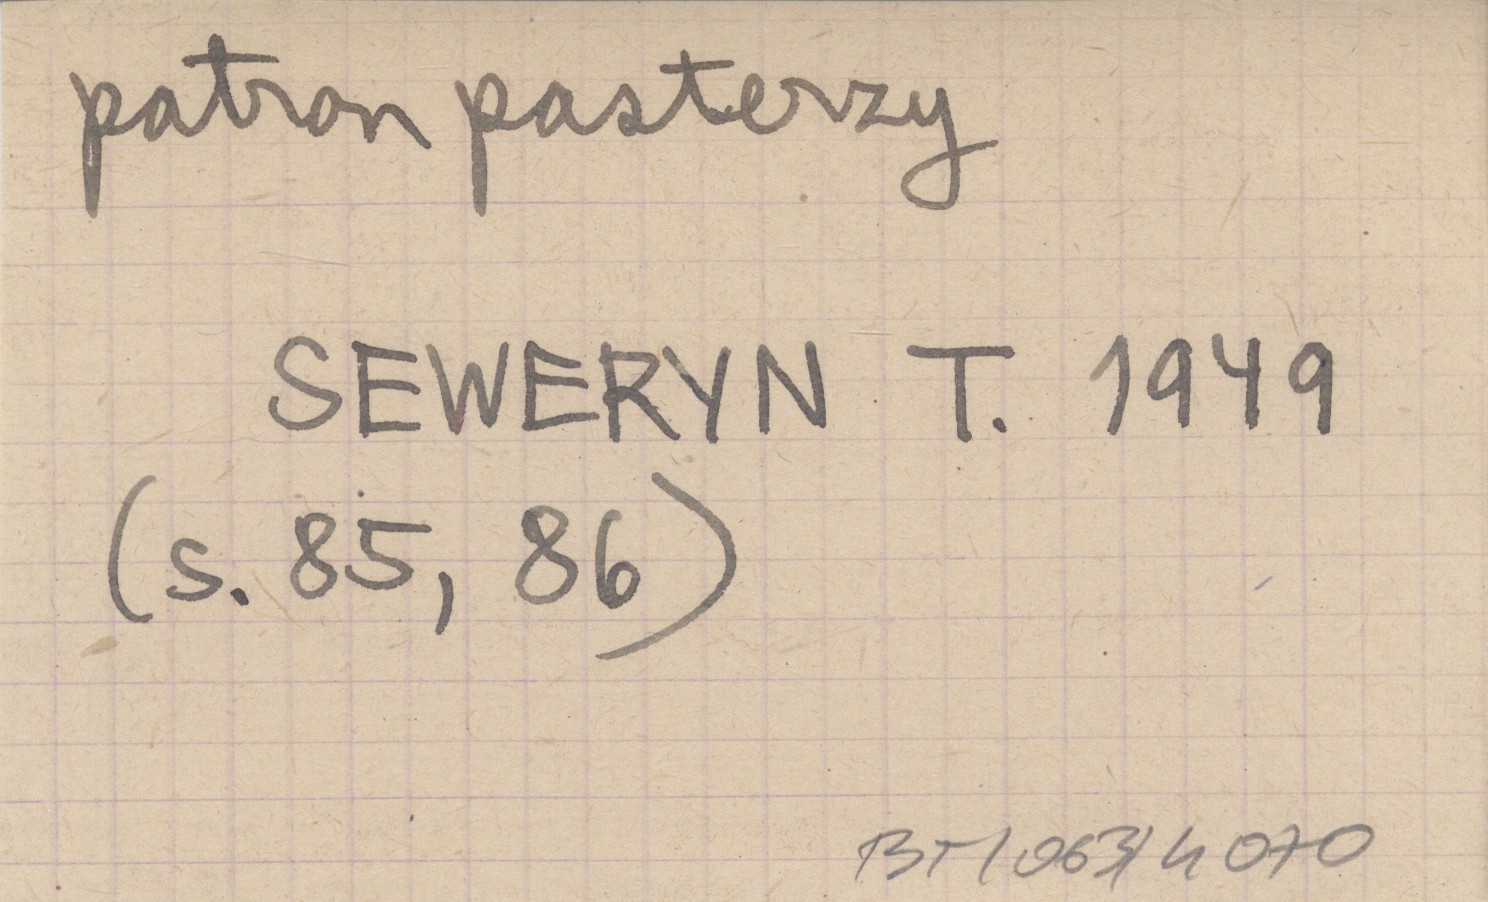 patron pasterzy
SEWERYN T. 1949
(s. 85, 86)
BT/063/4070